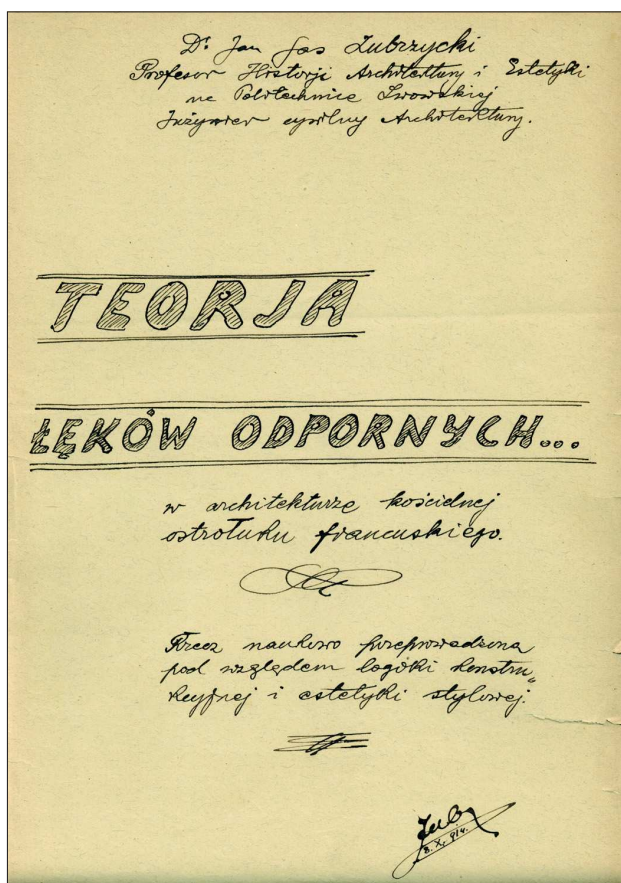 Dr Jan Sas Zubrzycki
Profesor Historji Architektury i Estetyki
na Politechnice Lwowskiej
Inżynier cywilny Architektury.
TEORJA
ŁĘKÓW ODPORNYCH...
w architekturze kościelnej
ostrołuku francuskiego.
Rzecz naukowo przeprowadzona
pod względem logiki konstru„
kcyjnej i estetyki stylowej.
Zub
8. X. 914.